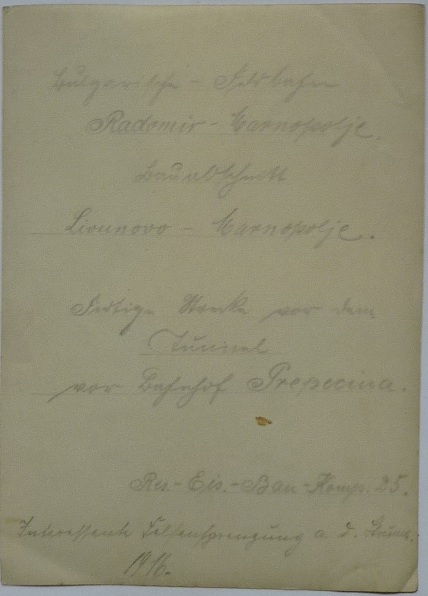 Bulgarische - Feldbahn
Radomir - Carnopolje.
Bauabschnitt
Livunovo - Carnopolje.
Fertige Strecke vor dem
Tunnel
vor Bahnhof Prepecina.
Res.-Eis.-Bau-Komp. 25.
Interessante Felsensprengung a. d.
1916.